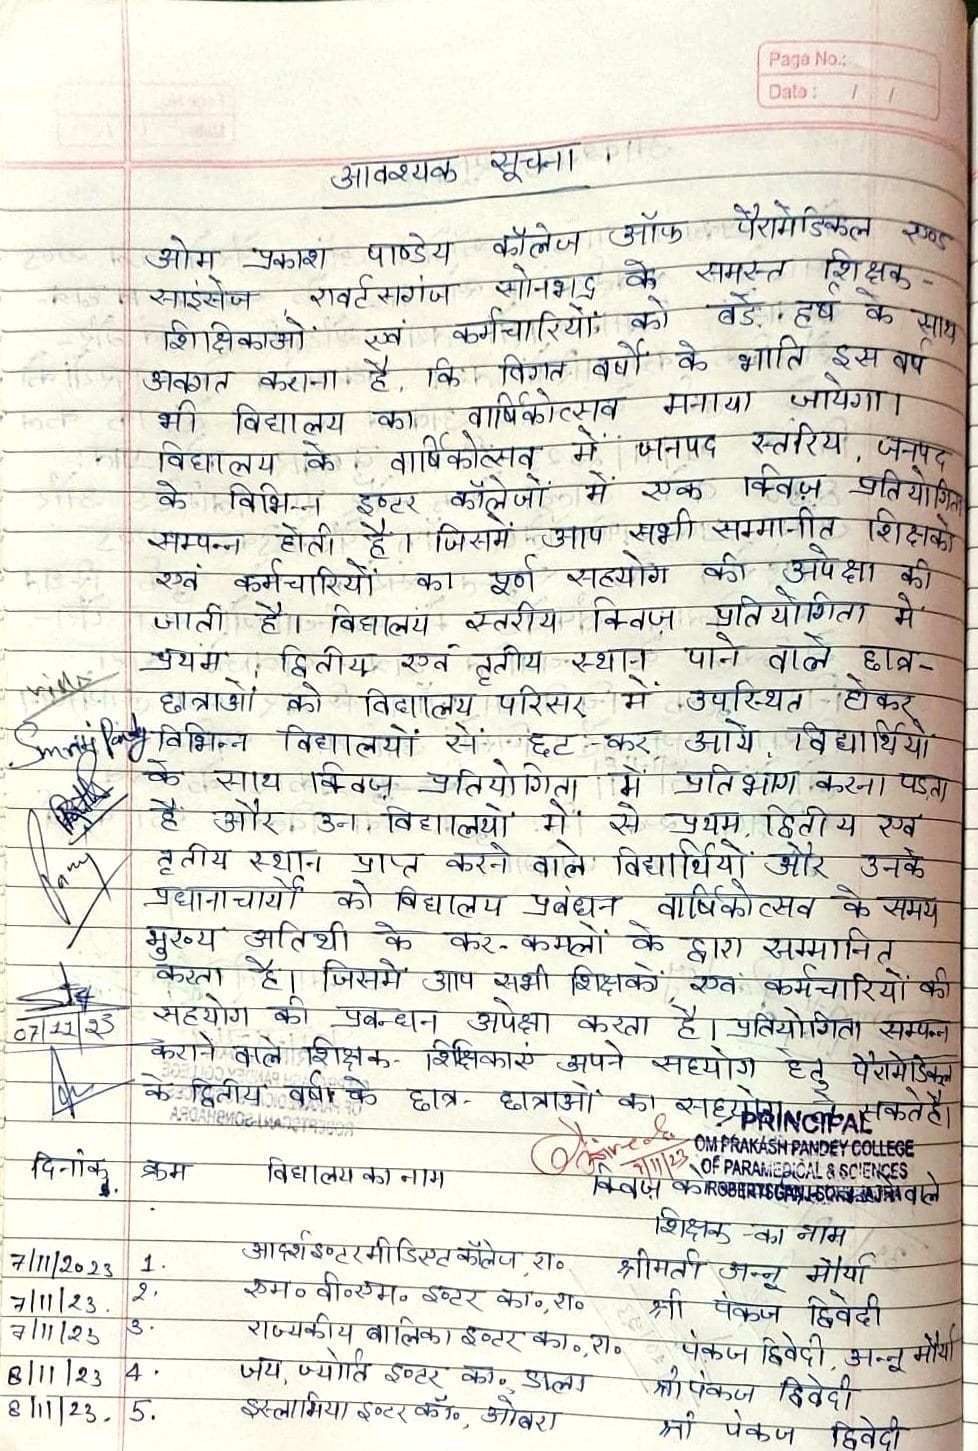 Page No.:
Date : / /
आवश्यक सूचना ।
ओम प्रकाश पाण्डेय कॉलेज ऑफ पैरामेडिकल एण्ड
साइंसेज, रावर्टसगंज, सोनभद्र के समस्त शिक्षक-
शिक्षिकाओं एवं कर्मचारियों को बड़े हर्ष के साथ
अवगत कराना है, कि विगत वर्षों के भाति इस वर्ष
भी विद्यालय का वार्षिकोत्सव मनाया जायेगा।
विद्यालय के वार्षिकोत्सव में जनपद स्तरिय, जनपद
के विभिन्न इण्टर कॉलेजों में एक क्विज़ प्रतियोगिता
सम्पन्न होती है। जिसमें आप सभी सम्मानीत शिक्षको
एवं कर्मचारियों का पूर्ण सहयोग की अपेक्षा की
जाती है। विद्यालय स्तरीय क्विज़ प्रतियोगिता में
प्रथम, द्वितीय एवं तृतीय स्थान पाने वाले छात्र-
छात्राओं को विद्यालय परिसर में उपस्थित होकर
विभिन्न विद्यालयों से छट-कर आये विद्यार्थियों
के साथ क्विज़ प्रतियोगिता में प्रतिभाग करना पड़ता
है और उन विद्यालयों में से प्रथम, द्वितीय एवं
तृतीय स्थान प्राप्त करने वाले विद्यार्थियों और उनके
प्रधानाचार्यों को विद्यालय प्रबंधन वार्षिकोत्सव के समय
मुख्य अतिथी के कर-कमलों के द्वारा सम्मानित
करता है। जिसमें आप सभी शिक्षकों एवं कर्मचारियों की
07/11/23 सहयोग की प्रबन्धन अपेक्षा करता है। प्रतियोगिता सम्पन्न
कराने वाले शिक्षक- शिक्षिकाएं अपने सहयोग हेतु पैरामेडिकल
के द्वितीय वर्ष के छात्र- छात्राओं का सहयोग ले सकते है।
PRINCIPAL
OM PRAKASH PANDEY COLLEGE
OF PARAMEDICAL & SCIENCES
7/11/23
दिनांक क्रम विद्यालय का नाम क्विज़ वाले
शिक्षक का नाम
7/11/2023 1. आदर्श इण्टरमीडिएट कॉलेज, रा० श्रीमती अन्नू मौर्या
7/11/23. 2. एम० वी० एम० इण्टर का०, रा० श्री पंकज द्विवेदी
7/11/23 3. राज्यकीय बालिका इण्टर का०, रा० पंकज द्विवेदी, अन्नू मौर्या
8/11/23 4. जय ज्योति इण्टर का०, डाला श्री पंकज द्विवेदी
8/11/23. 5. इस्लामिया इण्टर कॉ०, ओबरा श्री पंकज द्विवेदी